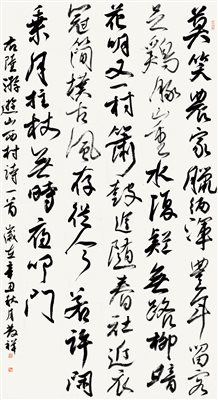 莫笑農家臘酒渾豐年留客
足鷄豚山重水復疑無路柳暗
花明又一村簫鼓追隨春社近衣
冠簡樸古風存從今若許閑
乘月拄杖無時夜叩門
右陸游遊山西村詩一首歲在辛丑秋月發祥